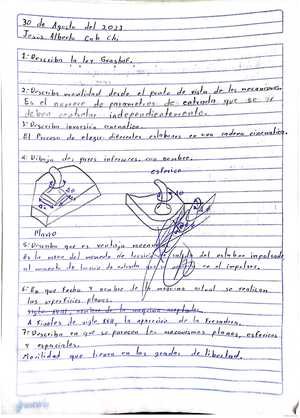 30 de Agosto del 2023
Jesis Alberto Cab Chi
1: Describa la ley Grashof.
2: Describa movilidad desde el punto de vista de los mecanismos.
Es el numero de parametros de entrada que se
deben controlar independientemente.
3: Describa inversión cinematica.
El Proceso de elegir diferentes eslabones en una cadena cinematica.
4: Dibuja dos pares inferiores con nombre.
esferico
Plano
5: Describa que es ventaja
Es la razon del momento de torsion de salida del eslabon impulsado,
al momento de torsion de entrada que se en el impulsor.
6: En que fecha y nombre de la maquina actual se realizan
las superficies planas.
A Finales de siglo XVIII, la aparicion de la Fresadora.
7: Describa en que se parecen los mecanismos planos, esfericos
y espaciales.
Movilidad que tienen en los grados de libertad.